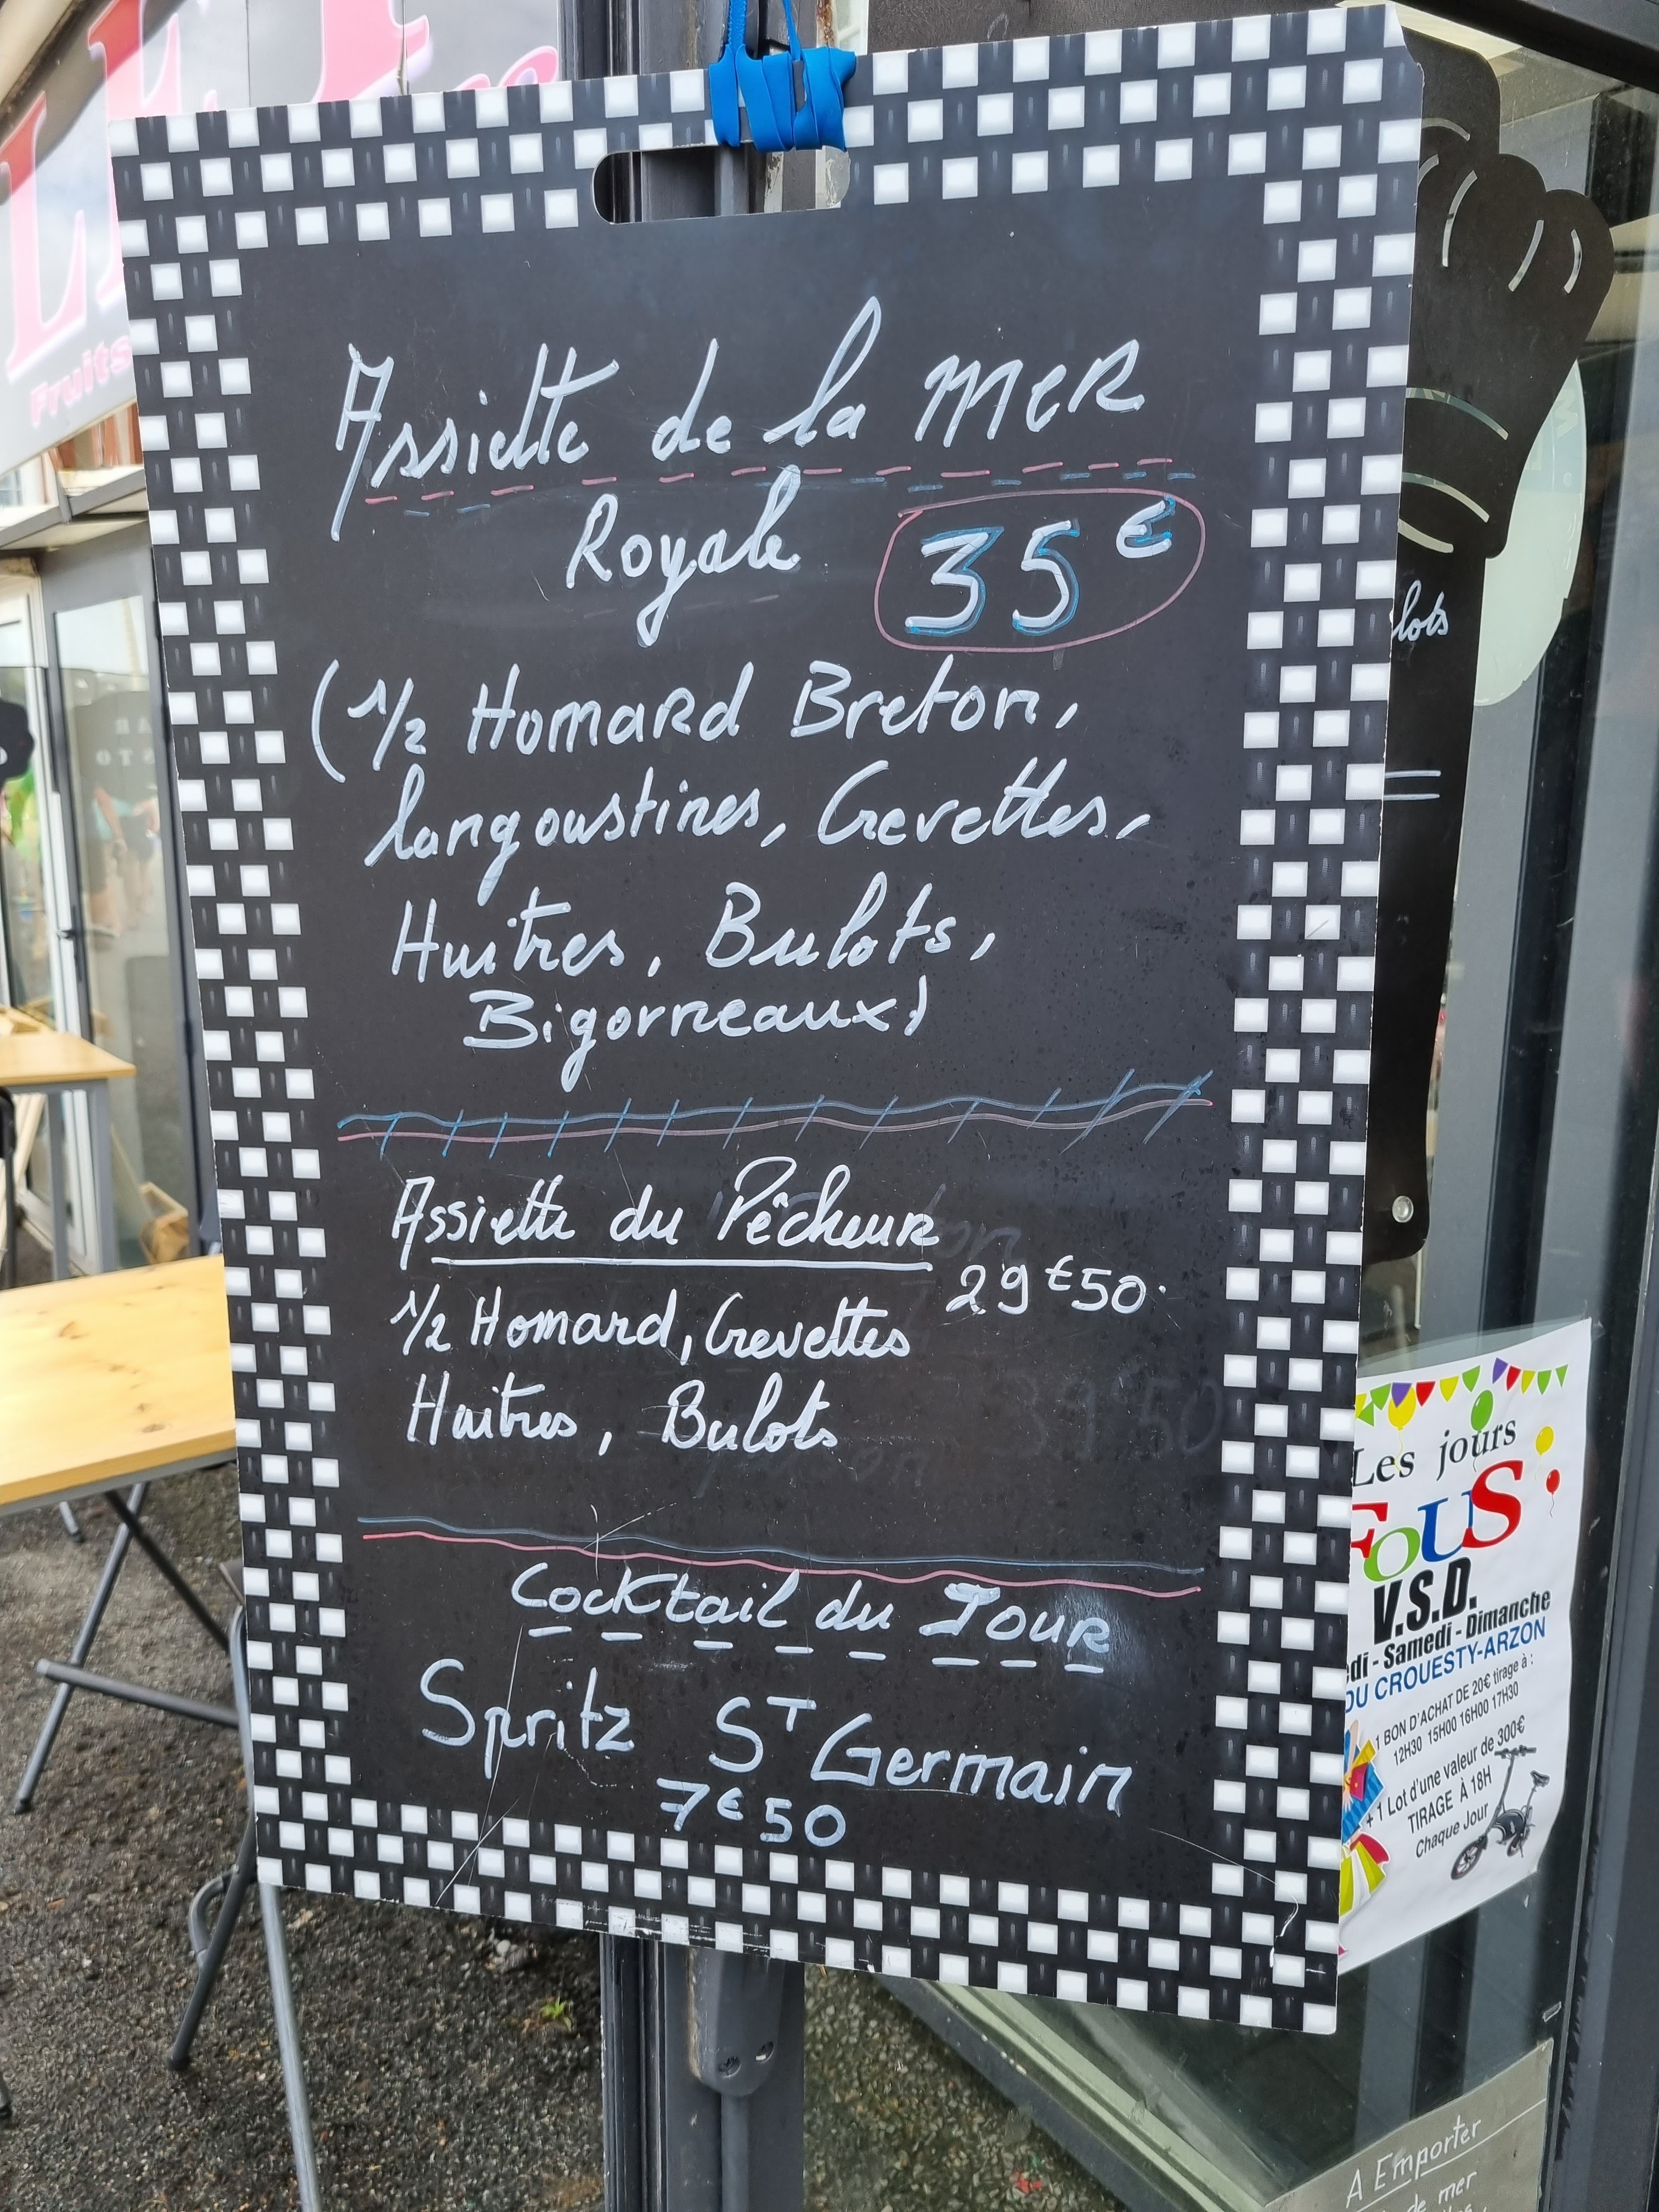 Assiette de la MER
Royale 35€
(1/2 Homard Breton,
langoustines, Crevettes,
Huitres, Bulots,
Bigorneaux)
Assiette du Pêcheur
29€50
1/2 Homard, Crevettes
Huitres, Bulots
Cocktail du Jour
Spritz St Germain
7€50
Fruits
lots
Les jours
FOUS
V.S.D.
edi - Samedi - Dimanche
DU CROUESTY-ARZON
1 BON D'ACHAT DE 20€ tirage à :
12H30 15H00 16H00 17H30
+ 1 Lot d'une valeur de 300€
TIRAGE À 18H
Chaque Jour
A Emporter
de mer